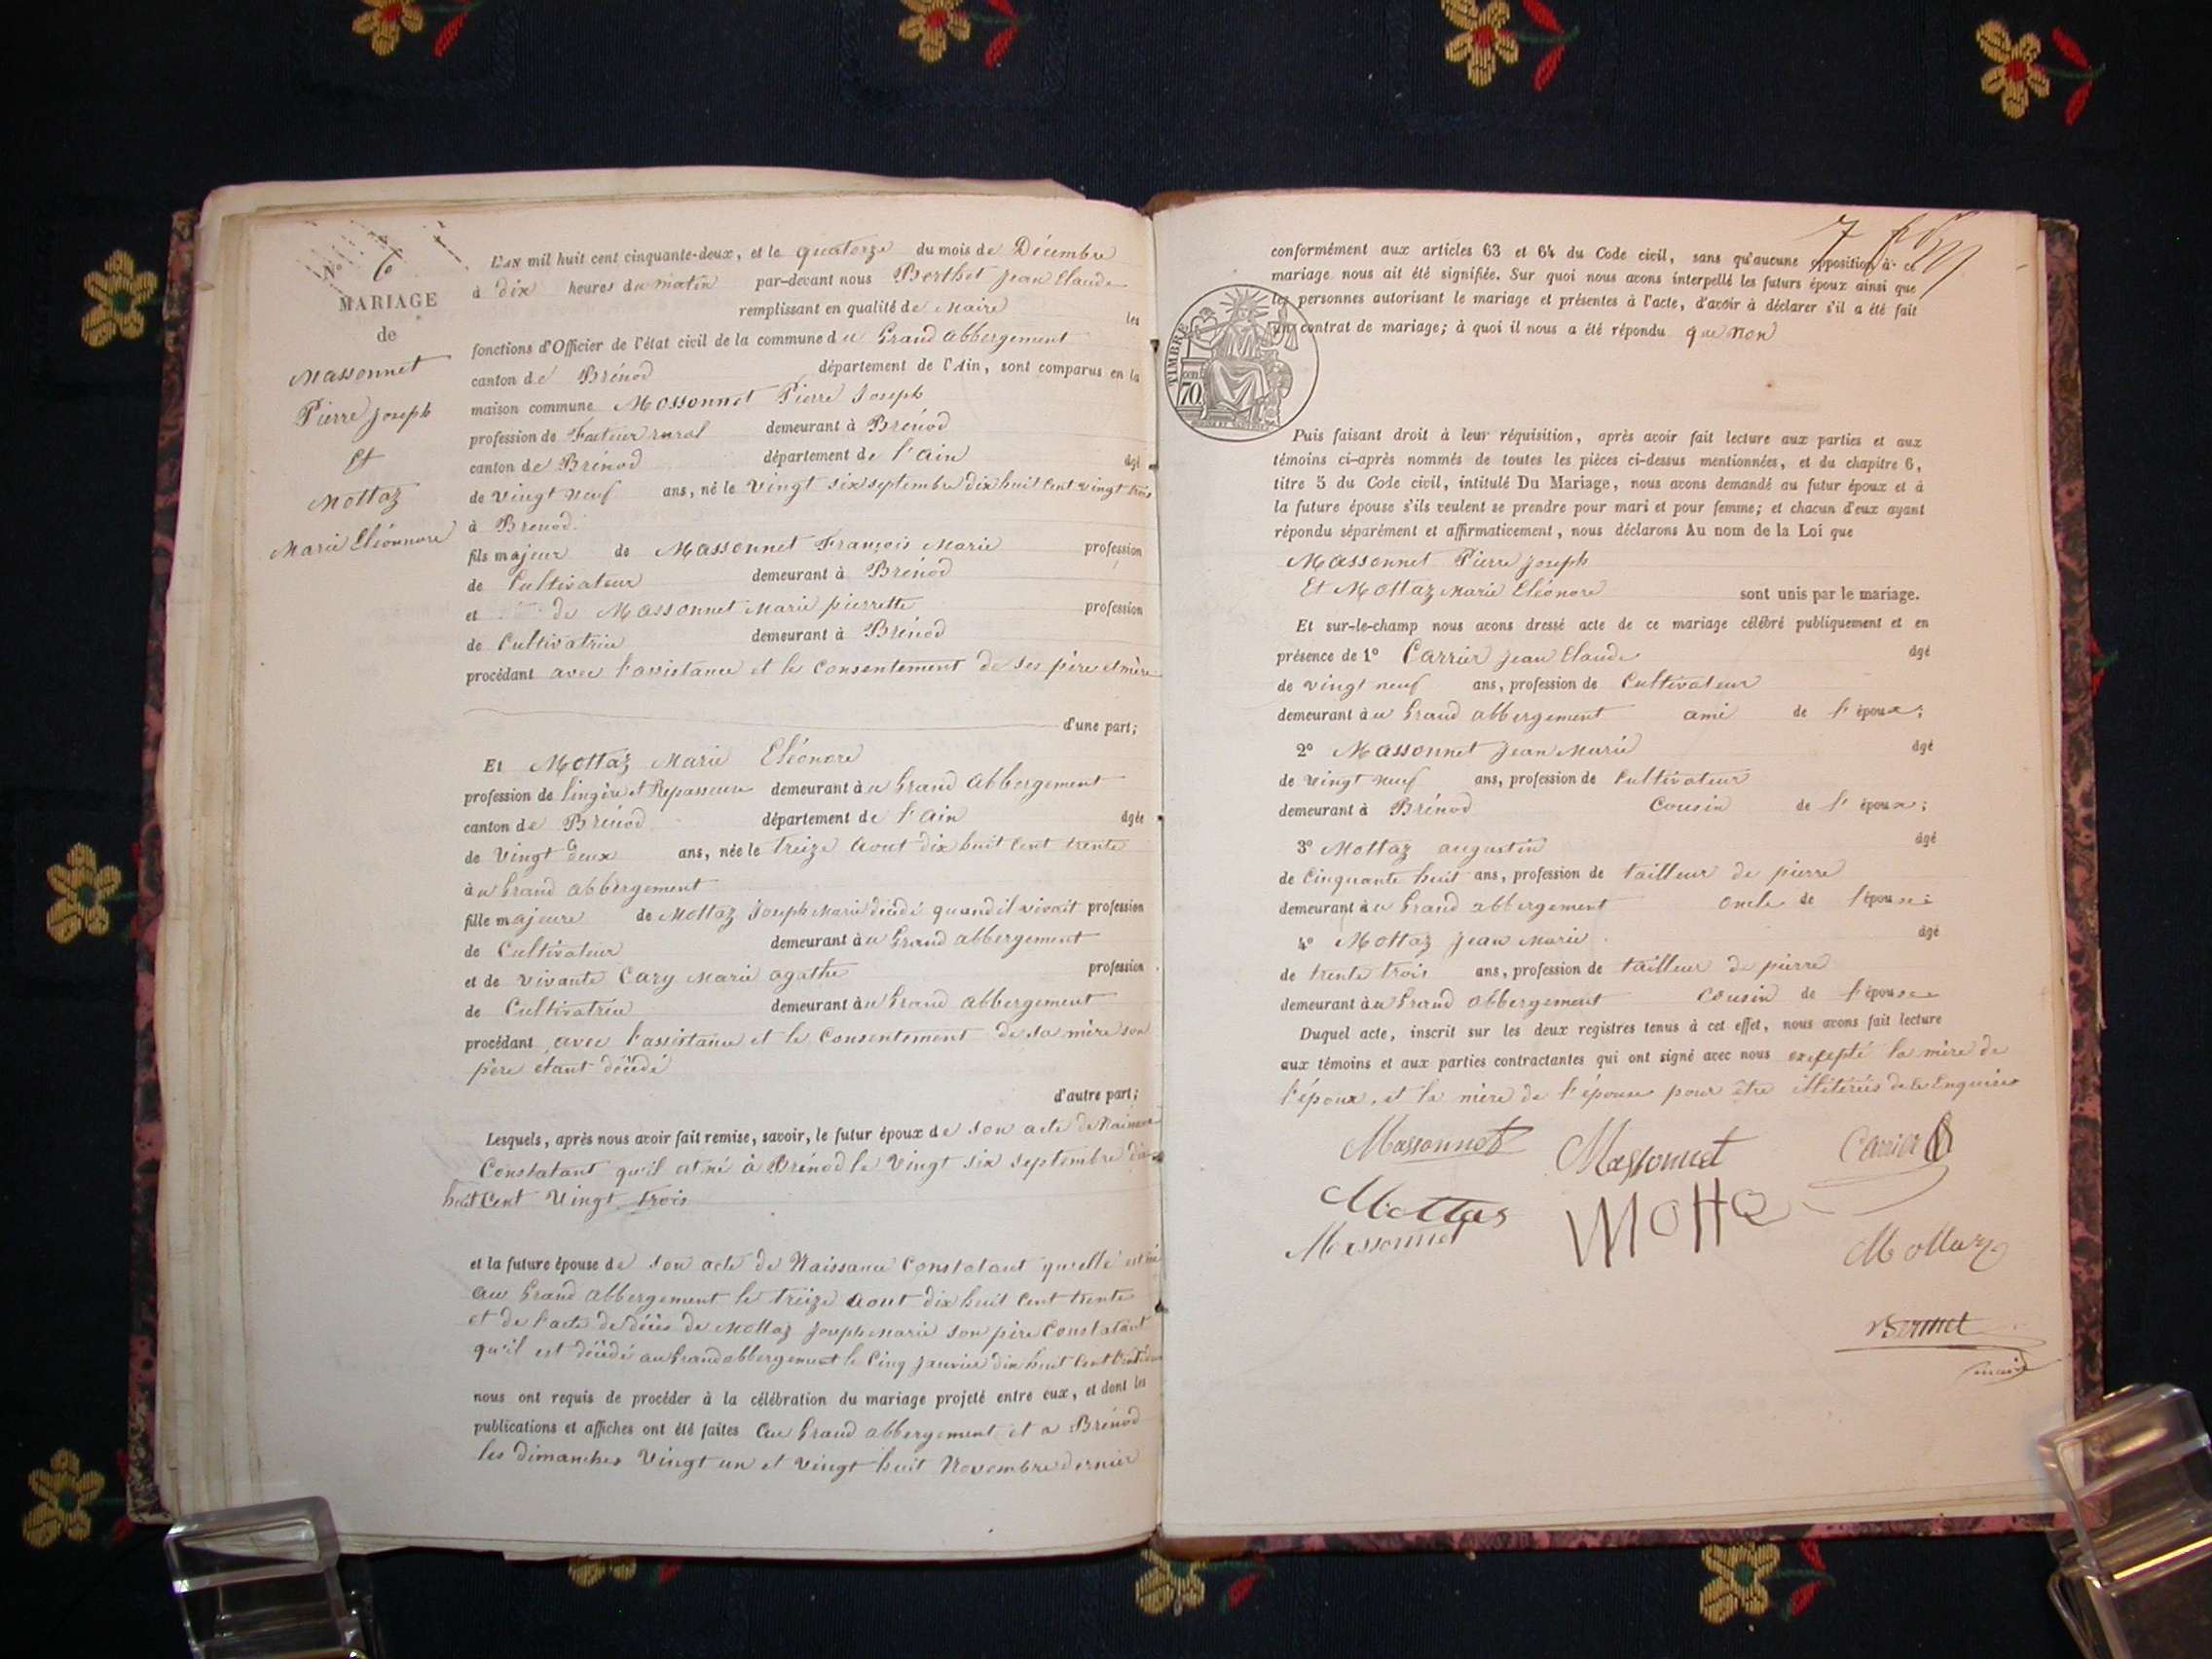 N° 6
MARIAGE
de
Massonnet
Pierre joseph
Et
Mottaz
Marie Eléonnore
L'AN mil huit cent cinquante-deux, et le quatorze du mois de Décembre
à dix heures du matin par-devant nous Berthet jean Claude
remplissant en qualité de Maire les
fonctions d'Officier de l'état civil de la commune du Grand abbergement
canton de Brénod département de l'Ain, sont comparus en la
maison commune Mossonnet Pierre Joseph
profession de Facteur rural demeurant à Brénod
canton de Brénod département de l'ain âgé
de vingt neuf ans, né le vingt six septembre dix huit cent vingt trois
à Brenod.
fils majeur de Massonnet François Marie profession
de Cultivateur demeurant à Brénod
et de Massonnet Marie pierrette profession
de Cultivatrice demeurant à Brénod
procédant avec l'assistance et le consentement de ses père et mère
d'une part;
Et Mottaz Marie Eléonore
profession de lingère et Repasseuse demeurant au Grand abbergement
canton de Brénod département de l'ain âgée
de vingt deux ans, née le treize aout dix huit cent trente
au Grand abbergement
fille majeure de Mottaz Joseph Marie décédé quand il vivait profession
de Cultivateur demeurant au Grand abbergement
et de vivante Cary Marie agathe profession
de Cultivatrice demeurant au Grand abbergement
procédant avec l'assistance et le Consentement de sa mère son
père étant décédé
d'autre part;
Lesquels, après nous avoir fait remise, savoir, le futur époux de son acte de Naissance
Constatant qu'il est né à Brénod le vingt six septembre dix
huit Cent Vingt trois
et la future épouse de son acte de Naissance Constatant qu'elle est née
au Grand abbergement le treize aout dix huit cent trente
et de l'acte de décès de Mottaz joseph Marie son père Constatant
qu'il est décédé au Grand abbergement le cinq janvier dix huit Cent
nous ont requis de procéder à la célébration du mariage projeté entre eux, et dont les
publications et affiches ont été faites au Grand abbergement et a Brénod
les dimanches vingt un et vingt huit Novembre dernier
7
conformément aux articles 63 et 64 du Code civil, sans qu'aucune opposition à ce
mariage nous ait été signifiée. Sur quoi nous avons interpellé les futurs époux ainsi que
les personnes autorisant le mariage et présentes à l'acte, d'avoir à déclarer s'il a été fait
un contrat de mariage; à quoi il nous a été répondu que non
TIMBRE
70
Puis faisant droit à leur réquisition, après avoir fait lecture aux parties et aux
témoins ci-après nommés de toutes les pièces ci-dessus mentionnées, et du chapitre 6,
titre 5 du Code civil, intitulé Du Mariage, nous avons demandé au futur époux et à
la future épouse s'ils veulent se prendre pour mari et pour femme; et chacun d'eux ayant
répondu séparément et affirmativement, nous déclarons Au nom de la Loi que
Massonnet Pierre joseph
Et Mottaz Marie Eléonore sont unis par le mariage.
Et sur-le-champ nous avons dressé acte de ce mariage célébré publiquement et en
présence de 1° Carrier jean Claude âgé
de vingt neuf ans, profession de Cultivateur
demeurant au Grand abbergement ami de l'époux;
2° Massonnet jean Marie âgé
de vingt neuf ans, profession de Cultivateur
demeurant à Brénod Cousin de l'époux;
3° Mottaz augustin âgé
de Cinquante huit ans, profession de tailleur de pierre
demeurant au Grand abbergement oncle de l'épouse
4° Mottaz jean Marie âgé
de trente trois ans, profession de tailleur de pierre
demeurant au Grand abbergement Cousin de l'épouse
Duquel acte, inscrit sur les deux registres tenus à cet effet, nous avons fait lecture
aux témoins et aux parties contractantes qui ont signé avec nous excepté la mère de
l'époux, et la mère de l'épouse pour être illitérées de ce Enquises
Massonnet Massonnet Carrier
Mottas Motta
Massonnet Mottaz
maire